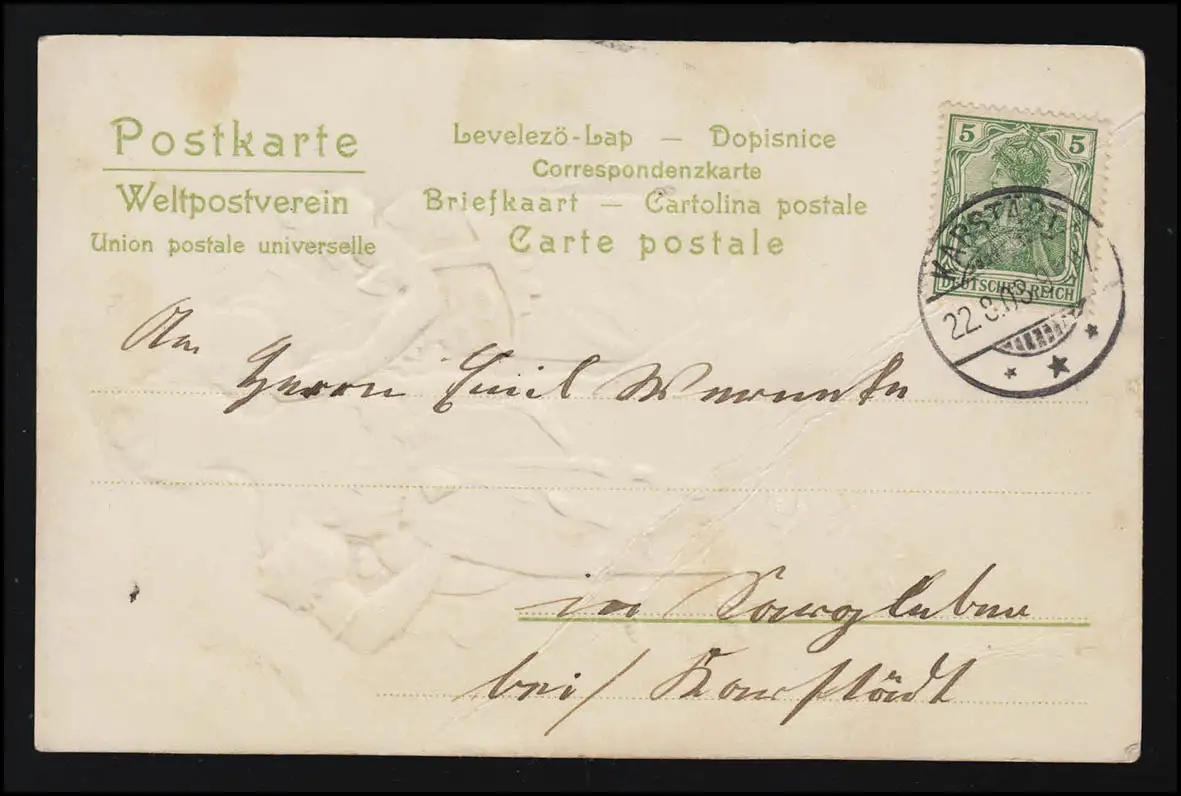 Postkarte
Weltpostverein
Union postale universelle
Levelezö-Lap — Dopisnice
Correspondenzkarte
Briefkaart — Cartolina postale
Carte postale
5 5
DEUTSCHES REICH
KARSTÄDT
22.8.03
An
Herrn Emil Warnke
in Sargleben
bei Karstädt